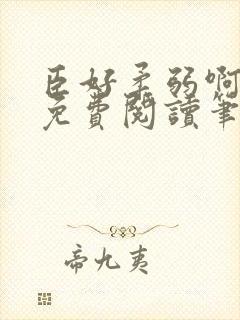 臣好柔弱啊
免費閱讀筆
帝九夷